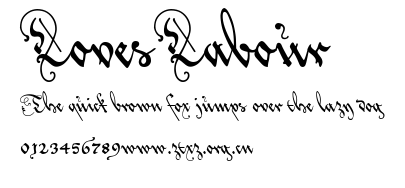 Loves Labour
The quick brown fox jumps over the lazy dog
0123456789www.ztxz.org.cn